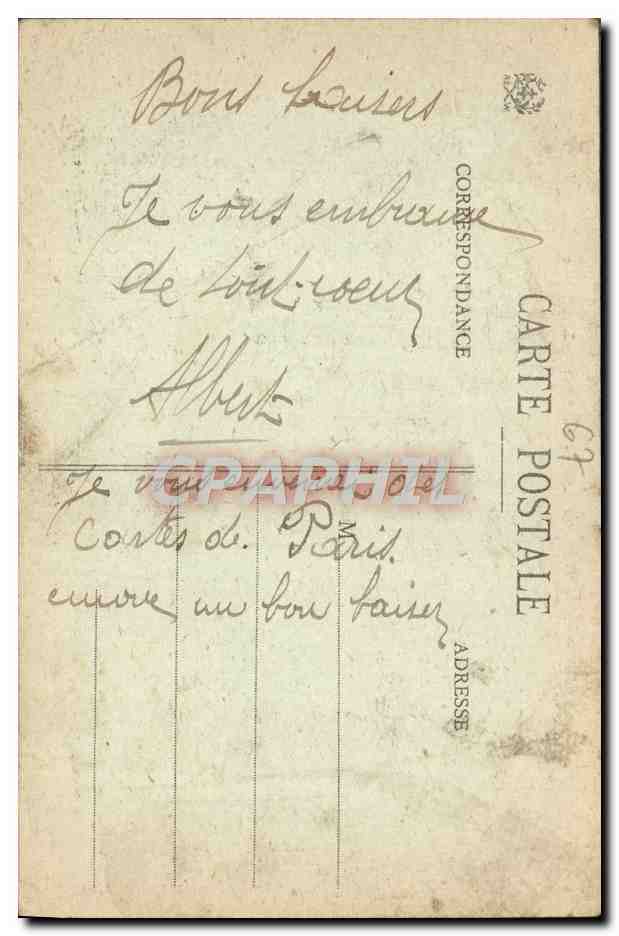 Bons baisers
Je vous embrasse
de tout coeur
Albert
Je vous
cartes de Paris.
encore un bon baiser
CORRESPONDANCE
CARTE POSTALE
67
M
ADRESSE
CPARHIL